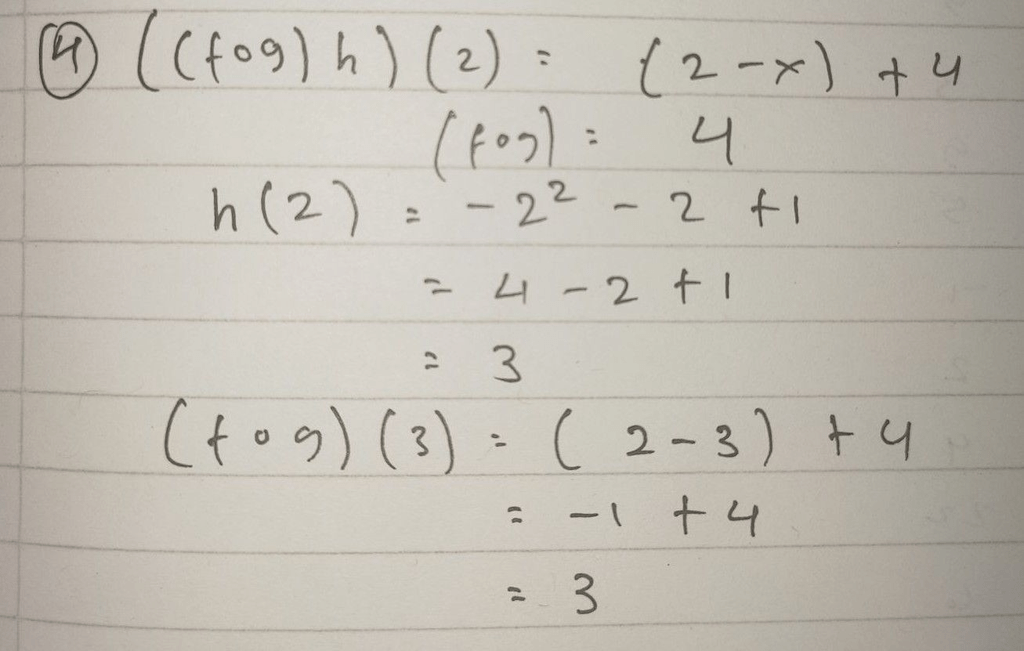 ④ ((fog) h) (2) = (2-x) + 4
(fog) = 4
h(2) = -2² - 2 + 1
= 4 - 2 + 1
= 3
(fog) (3) = (2-3) + 4
= -1 + 4
= 3